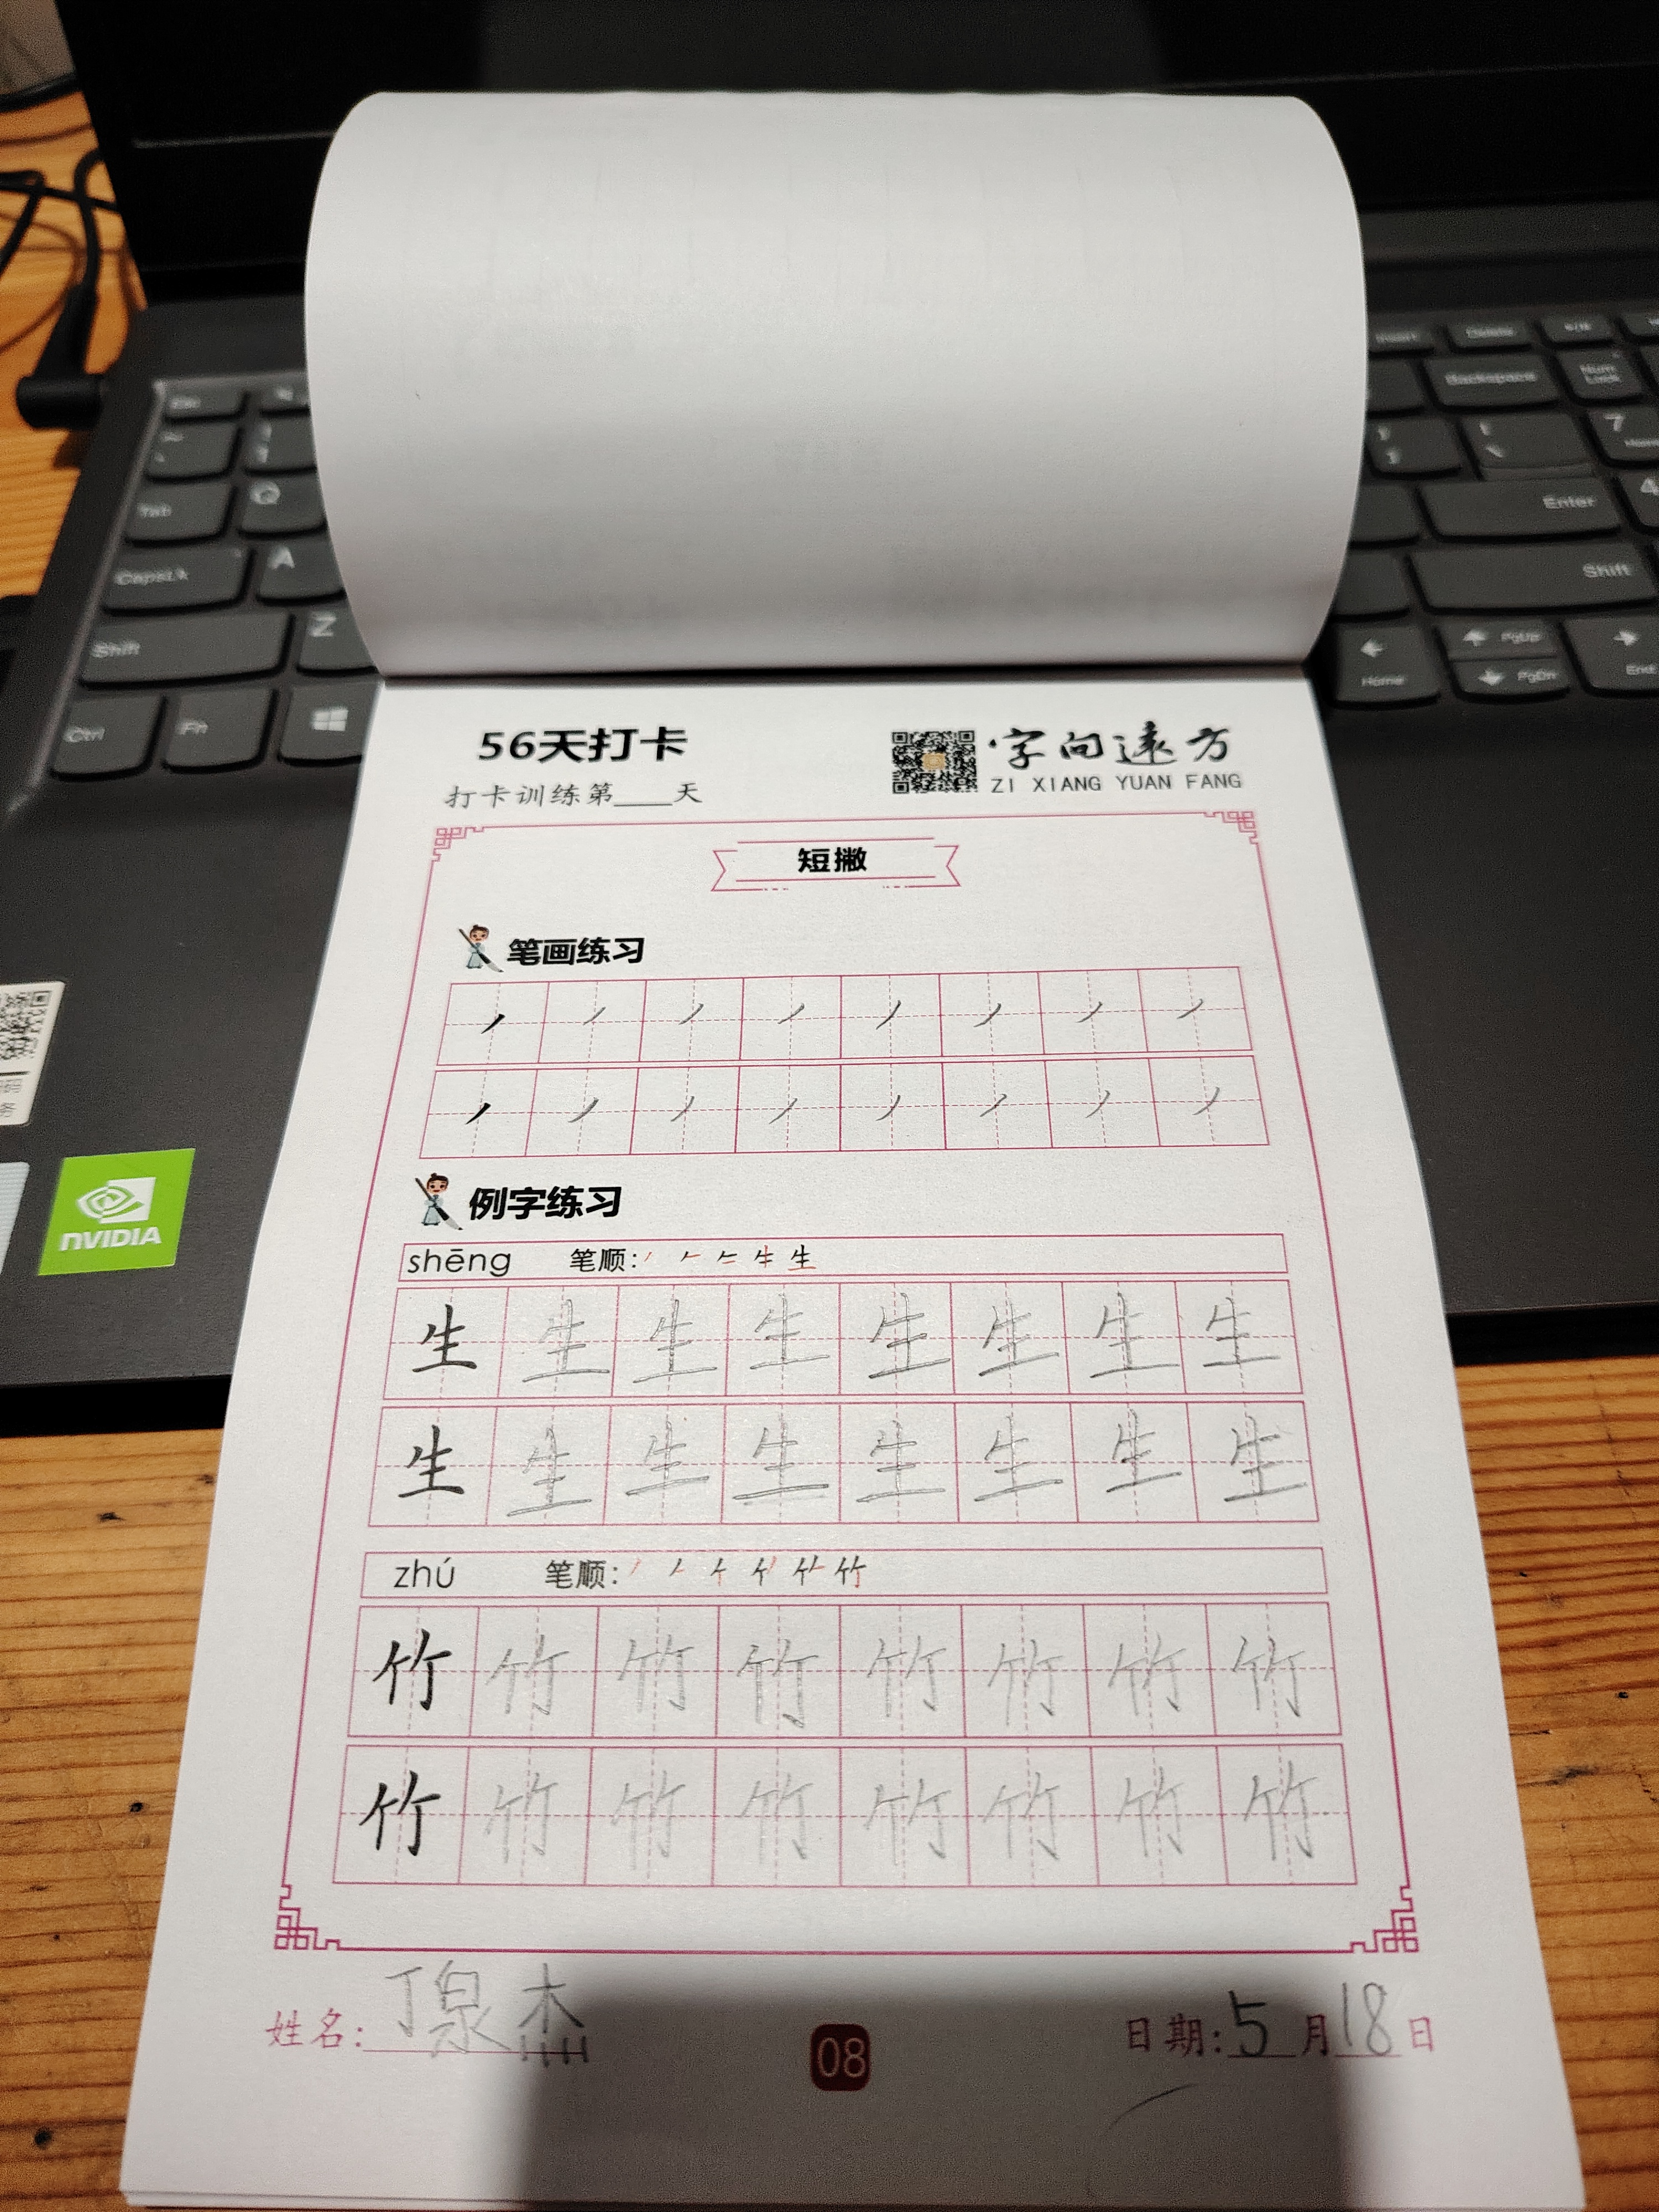 Insert Delete
Esc Backspace Num Lock
7 Home
Tab Q Enter 4
CapsLk A Shift
Shift Z PgUp
Ctrl Fn Home PgDn End
56天打卡
字向远方
打卡训练第____天
ZI XIANG YUAN FANG
短撇
笔画练习
丿 丿 丿 丿 丿 丿 丿 丿
丿 丿 丿 丿 丿 丿 丿 丿
NVIDIA
例字练习
shēng 笔顺: 生
生 生 生 生 生 生 生 生
生 生 生 生 生 生 生 生
zhú 笔顺: 竹
竹 竹 竹 竹 竹 竹 竹 竹
竹 竹 竹 竹 竹 竹 竹 竹
姓名: 丁泉杰 08 日期: 5月18日